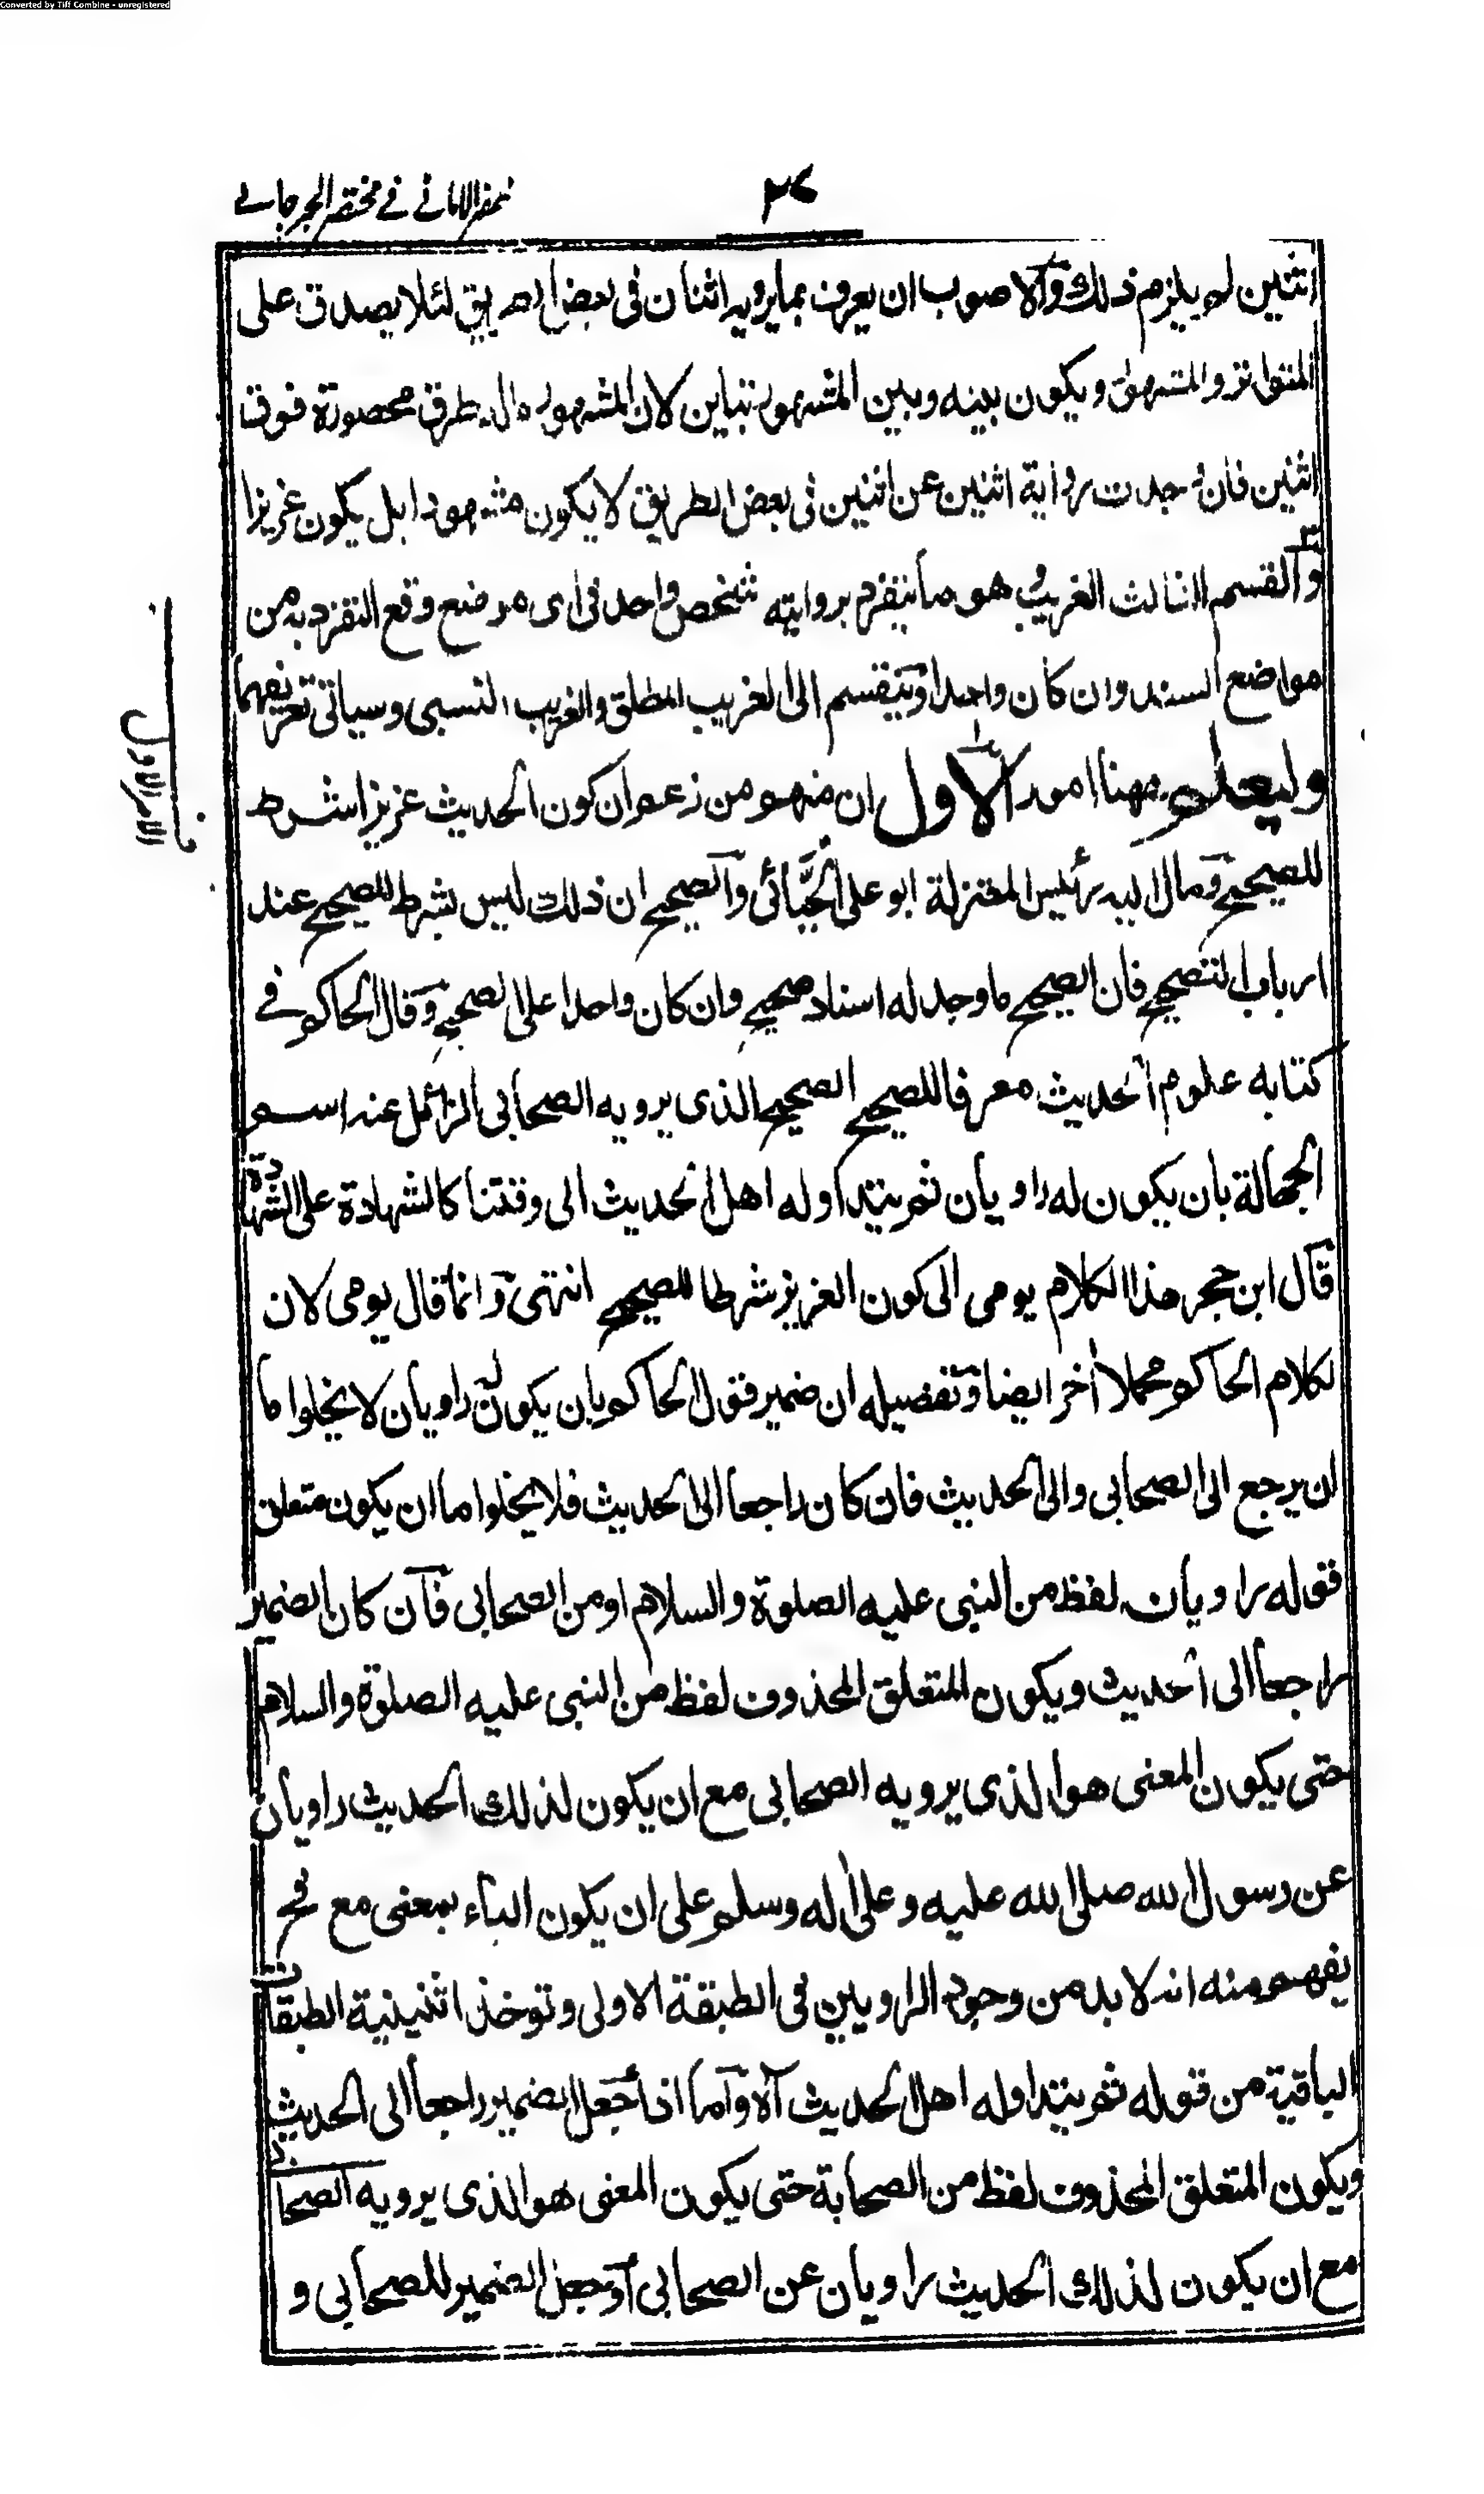 Converted by Tiff Combine - unregistered
ظفر الامانى فى مختصر الجرجانى
اثنين لم يلزم ذلك والاصوب ان يعرف بما يرويه اثنان فى بعض الطريق لئلا يصدق على
المتواتر والمشهور ويكون بينه وبين المشهور تباين لان المشهور ماله طرق محصورة فوق
اثنين فان وجدت رواية اثنين عن اثنين فى بعض الطريق لا يكون مشهورا بل يكون عزيزا
والقسم الثالث الغريب وهو ما ينفرد بروايته شخص واحد فى اى موضع وقع التفرد به من
مواضع السند وان كان واحدا وينقسم الى الغريب المطلق والغريب النسبى وسياتى تعريفهما
وليعلم ههنا امور الاول ان منهم من زعم ان كون الحديث عزيزا شرط
للصحيح ومال اليه رئيس المعتزلة ابو على الجبائى والصحيح ان ذلك ليس بشرط للصحيح عند
ارباب التصحيح فان الصحيح ما وجد له اسناد صحيح وان كان واحدا على الصحيح وقال الحاكم فى
كتابه علوم الحديث معرفا للصحيح الصحيح الذى يرويه الصحابى الزائل عنه اسم
الجهالة بان يكون له راويان ثم يتداوله اهل الحديث الى وقتنا كالشهادة على الشهادة
قال ابن حجر هذا الكلام يومى الى كون العزيز شرطا للصحيح انتهى وانما قال يومى لان
لكلام الحاكم محملا أخر ايضا وتفصيله ان ضمير فقول الحاكم بان يكون له راويان لا يخلوا ما
ان يرجع الى الصحابى والى الحديث فان كان راجعا الى الحديث فلا يخلوا ما ان يكون متعلق
قوله راويان لفظ من النبى عليه الصلوة والسلام او من الصحابى فان كان الضمير
راجعا الى الحديث ويكون المتعلق المحذوف لفظ من النبى عليه الصلوة والسلام
حتى يكون المعنى هو الذى يرويه الصحابى مع ان يكون لذلك الحديث راويان
عن رسول الله صلى الله عليه وعلى اله وسلم على ان يكون الباء بمعنى مع فح
يفهم منه انه لا بد من وجود الراويين فى الطبقة الاولى وتوخذ اثنينية الطبقات
الباقية من قوله ثم يتداوله اهل الحديث آه واما اذا جعل الضمير راجعا الى الحديث
ويكون المتعلق المحذوف لفظ من الصحابة حتى يكون المعنى هو الذى يرويه الصحابى
مع ان يكون لذلك الحديث راويان عن الصحابى او جعل الضمير للصحابى و